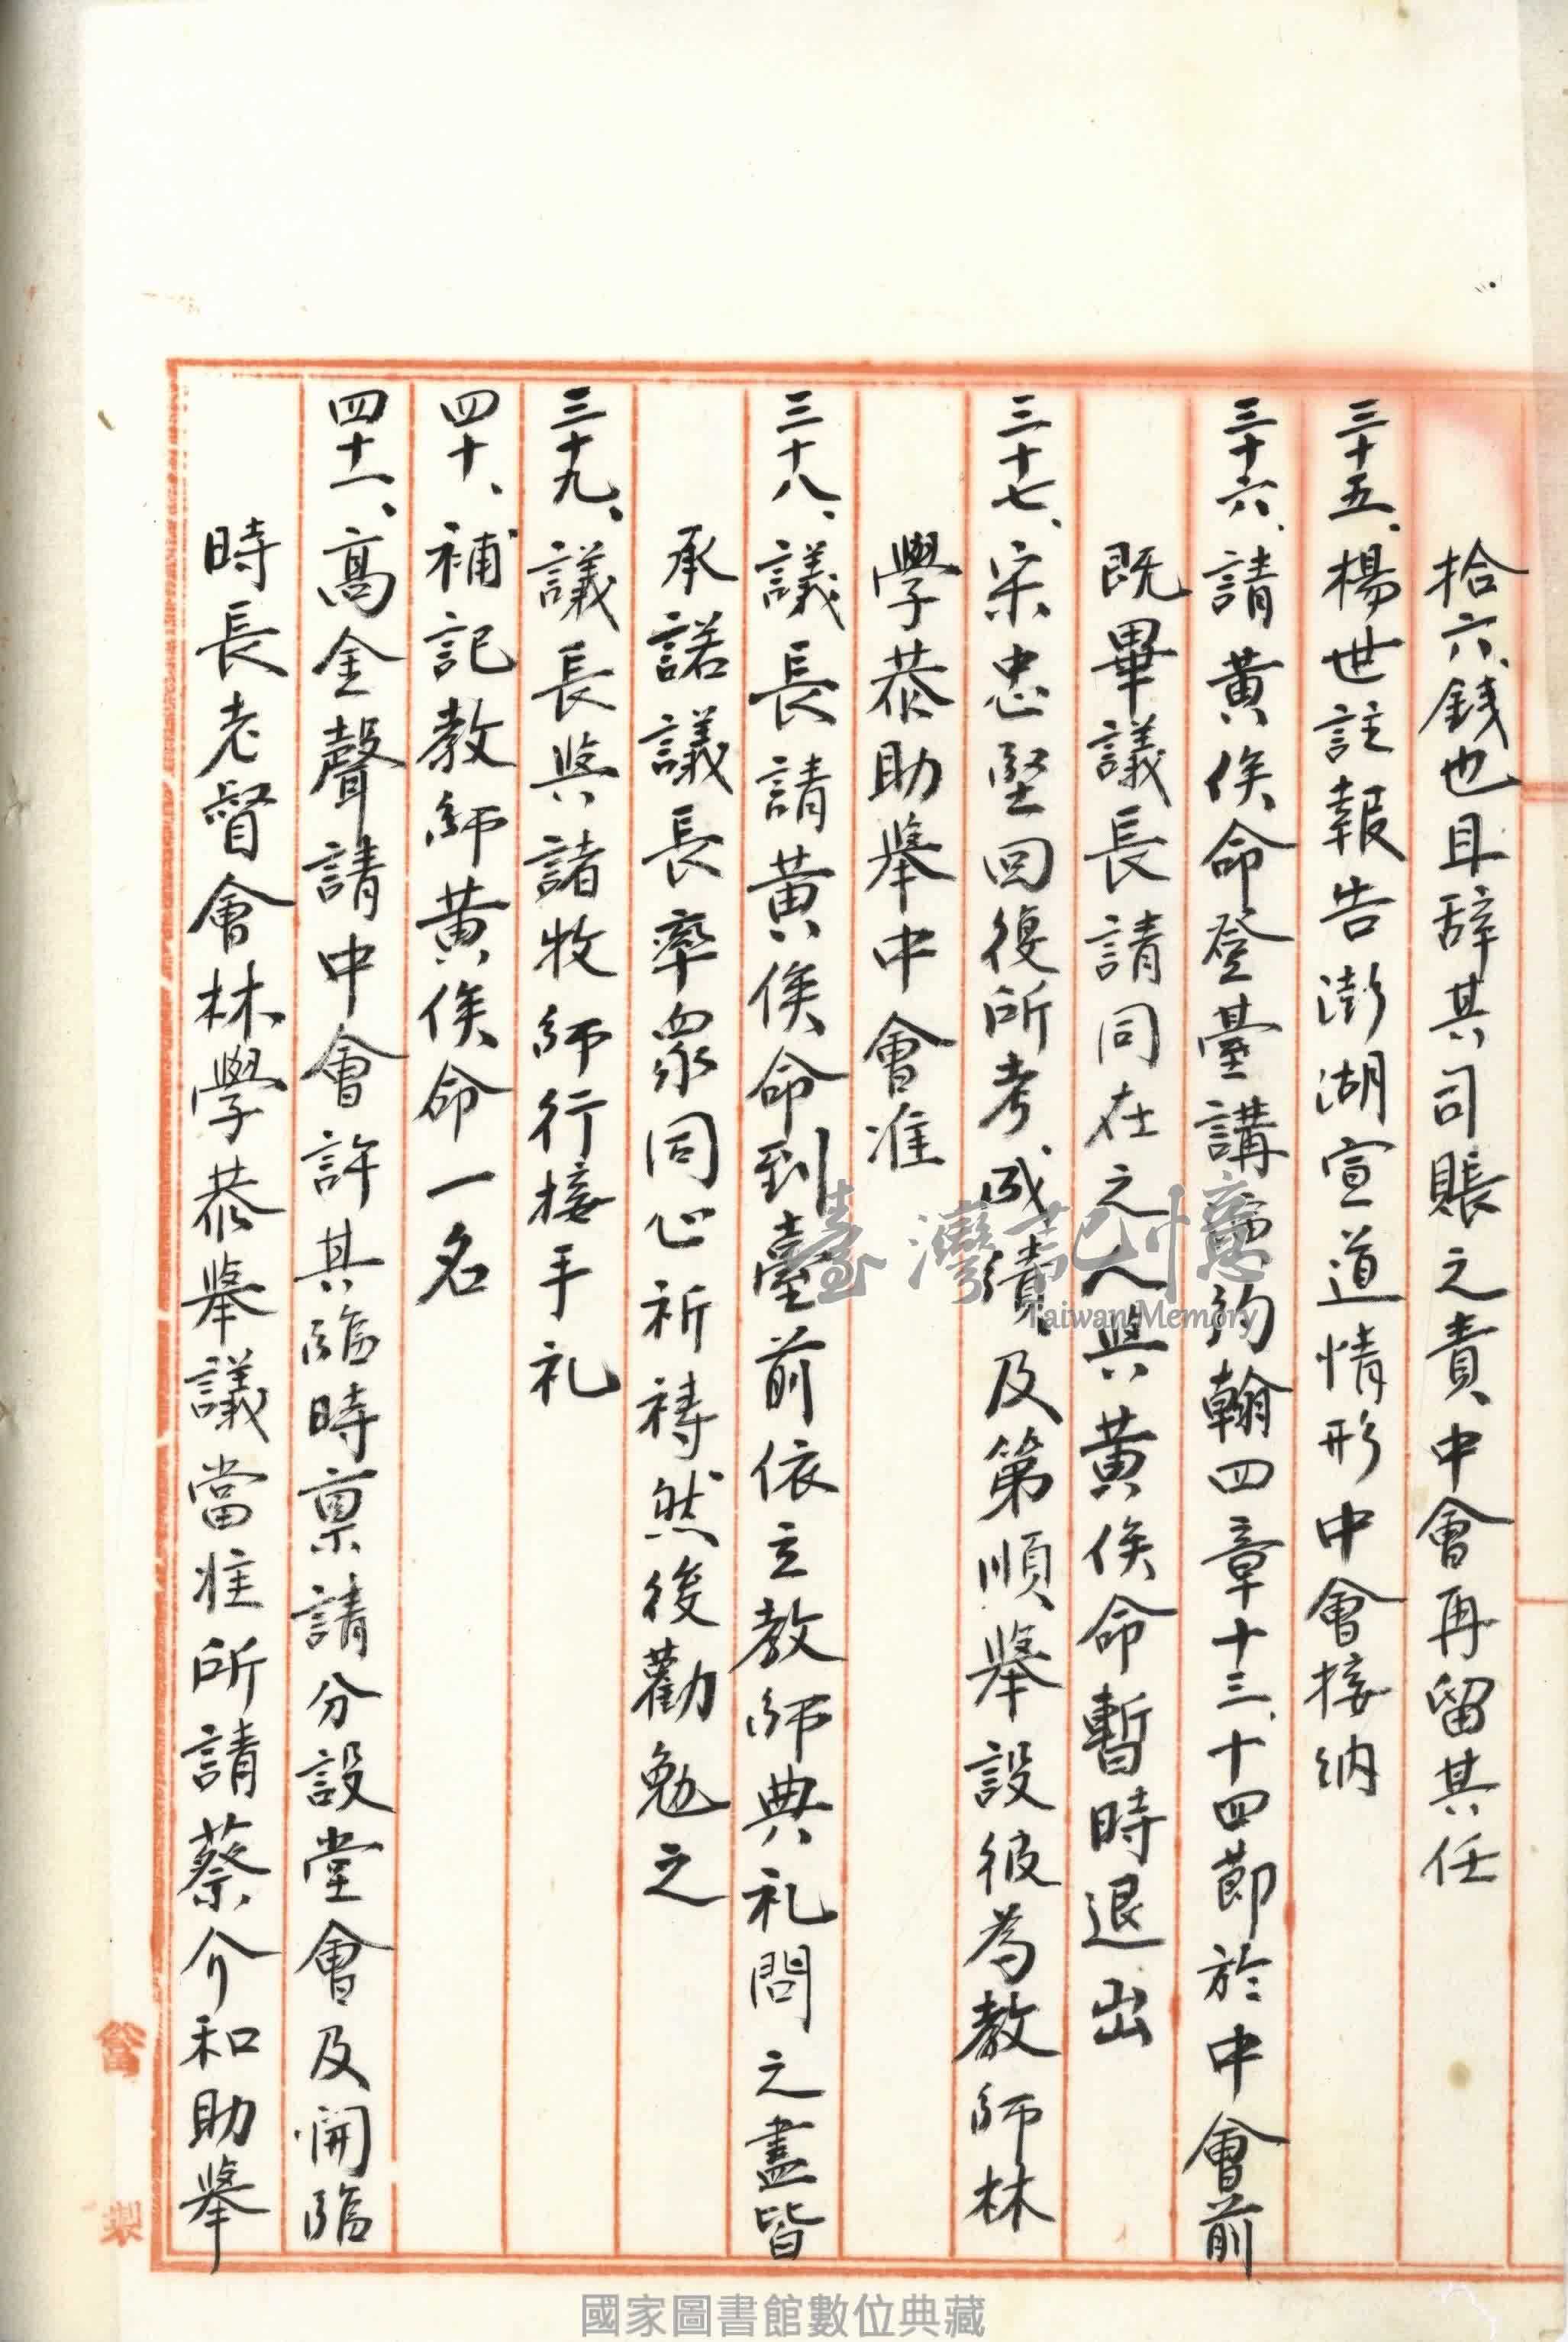 拾六、錢也且辞其司賬之責中會再留其任
三十五、楊世註報告澎湖宣道情形中會接纳
三十六、請黃俟命登臺講約翰四章十三、十四節於中會前
既畢議長請同在之人與黃俟命暫時退出
三十七、宋忠堅回復所考、成績、及第順舉設彼為教師林
學恭助舉中會准
三十八、議長請黃俟命到臺前依立教師典礼問之盡皆
承諾議長率衆同心祈禱然後勸勉之
三十九、議長與諸牧師行接手礼
四十、補記教師黃俟命一名
四十一、高金聲請中會許其臨時禀請分設堂會及開臨
時長老督會林學恭舉議當准所請蔡介和助舉
臺灣記憶
Taiwan Memory
製
國家圖書館數位典藏